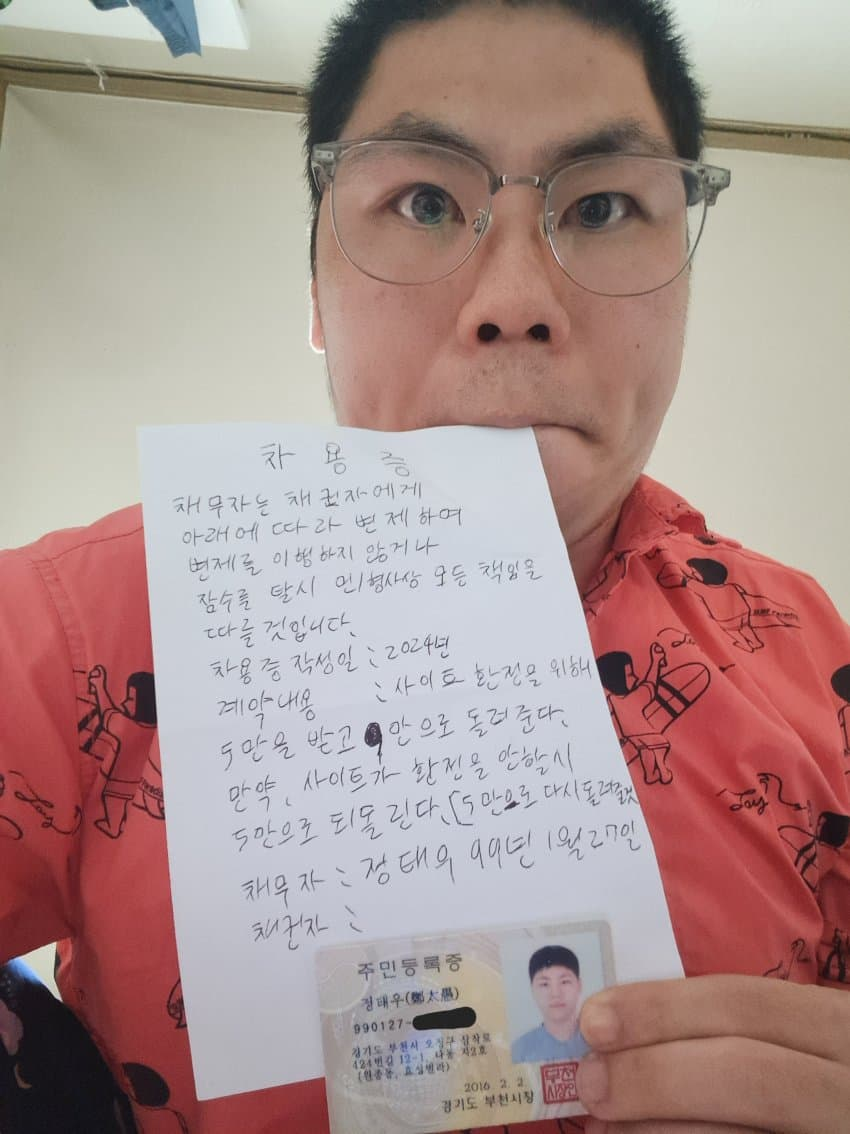 차 용 증
채무자는 채권자에게
아래에 따라 변제하여
변제를 이행하지 않거나
잠수를 탈시 민/형사상 모든 책임을
따를것입니다.
차용증 작성일 : 2024년
계약내용 : 사이트 환전을 위해서
5만을 받고 9만으로 돌려준다.
만약, 사이트가 환전을 안할시
5만으로 되돌린다. (5만으로 다시돌려줄것
채무자 : 정태우 99년 1월 27일
채권자 :
주민등록증
정태우(鄭太愚)
990127-
경기도 부천시 오정구 삼작로
424번길 12-1, 나동 지2호
(원종동, 효실빌라)
2016. 2. 2.
경기도 부천시장